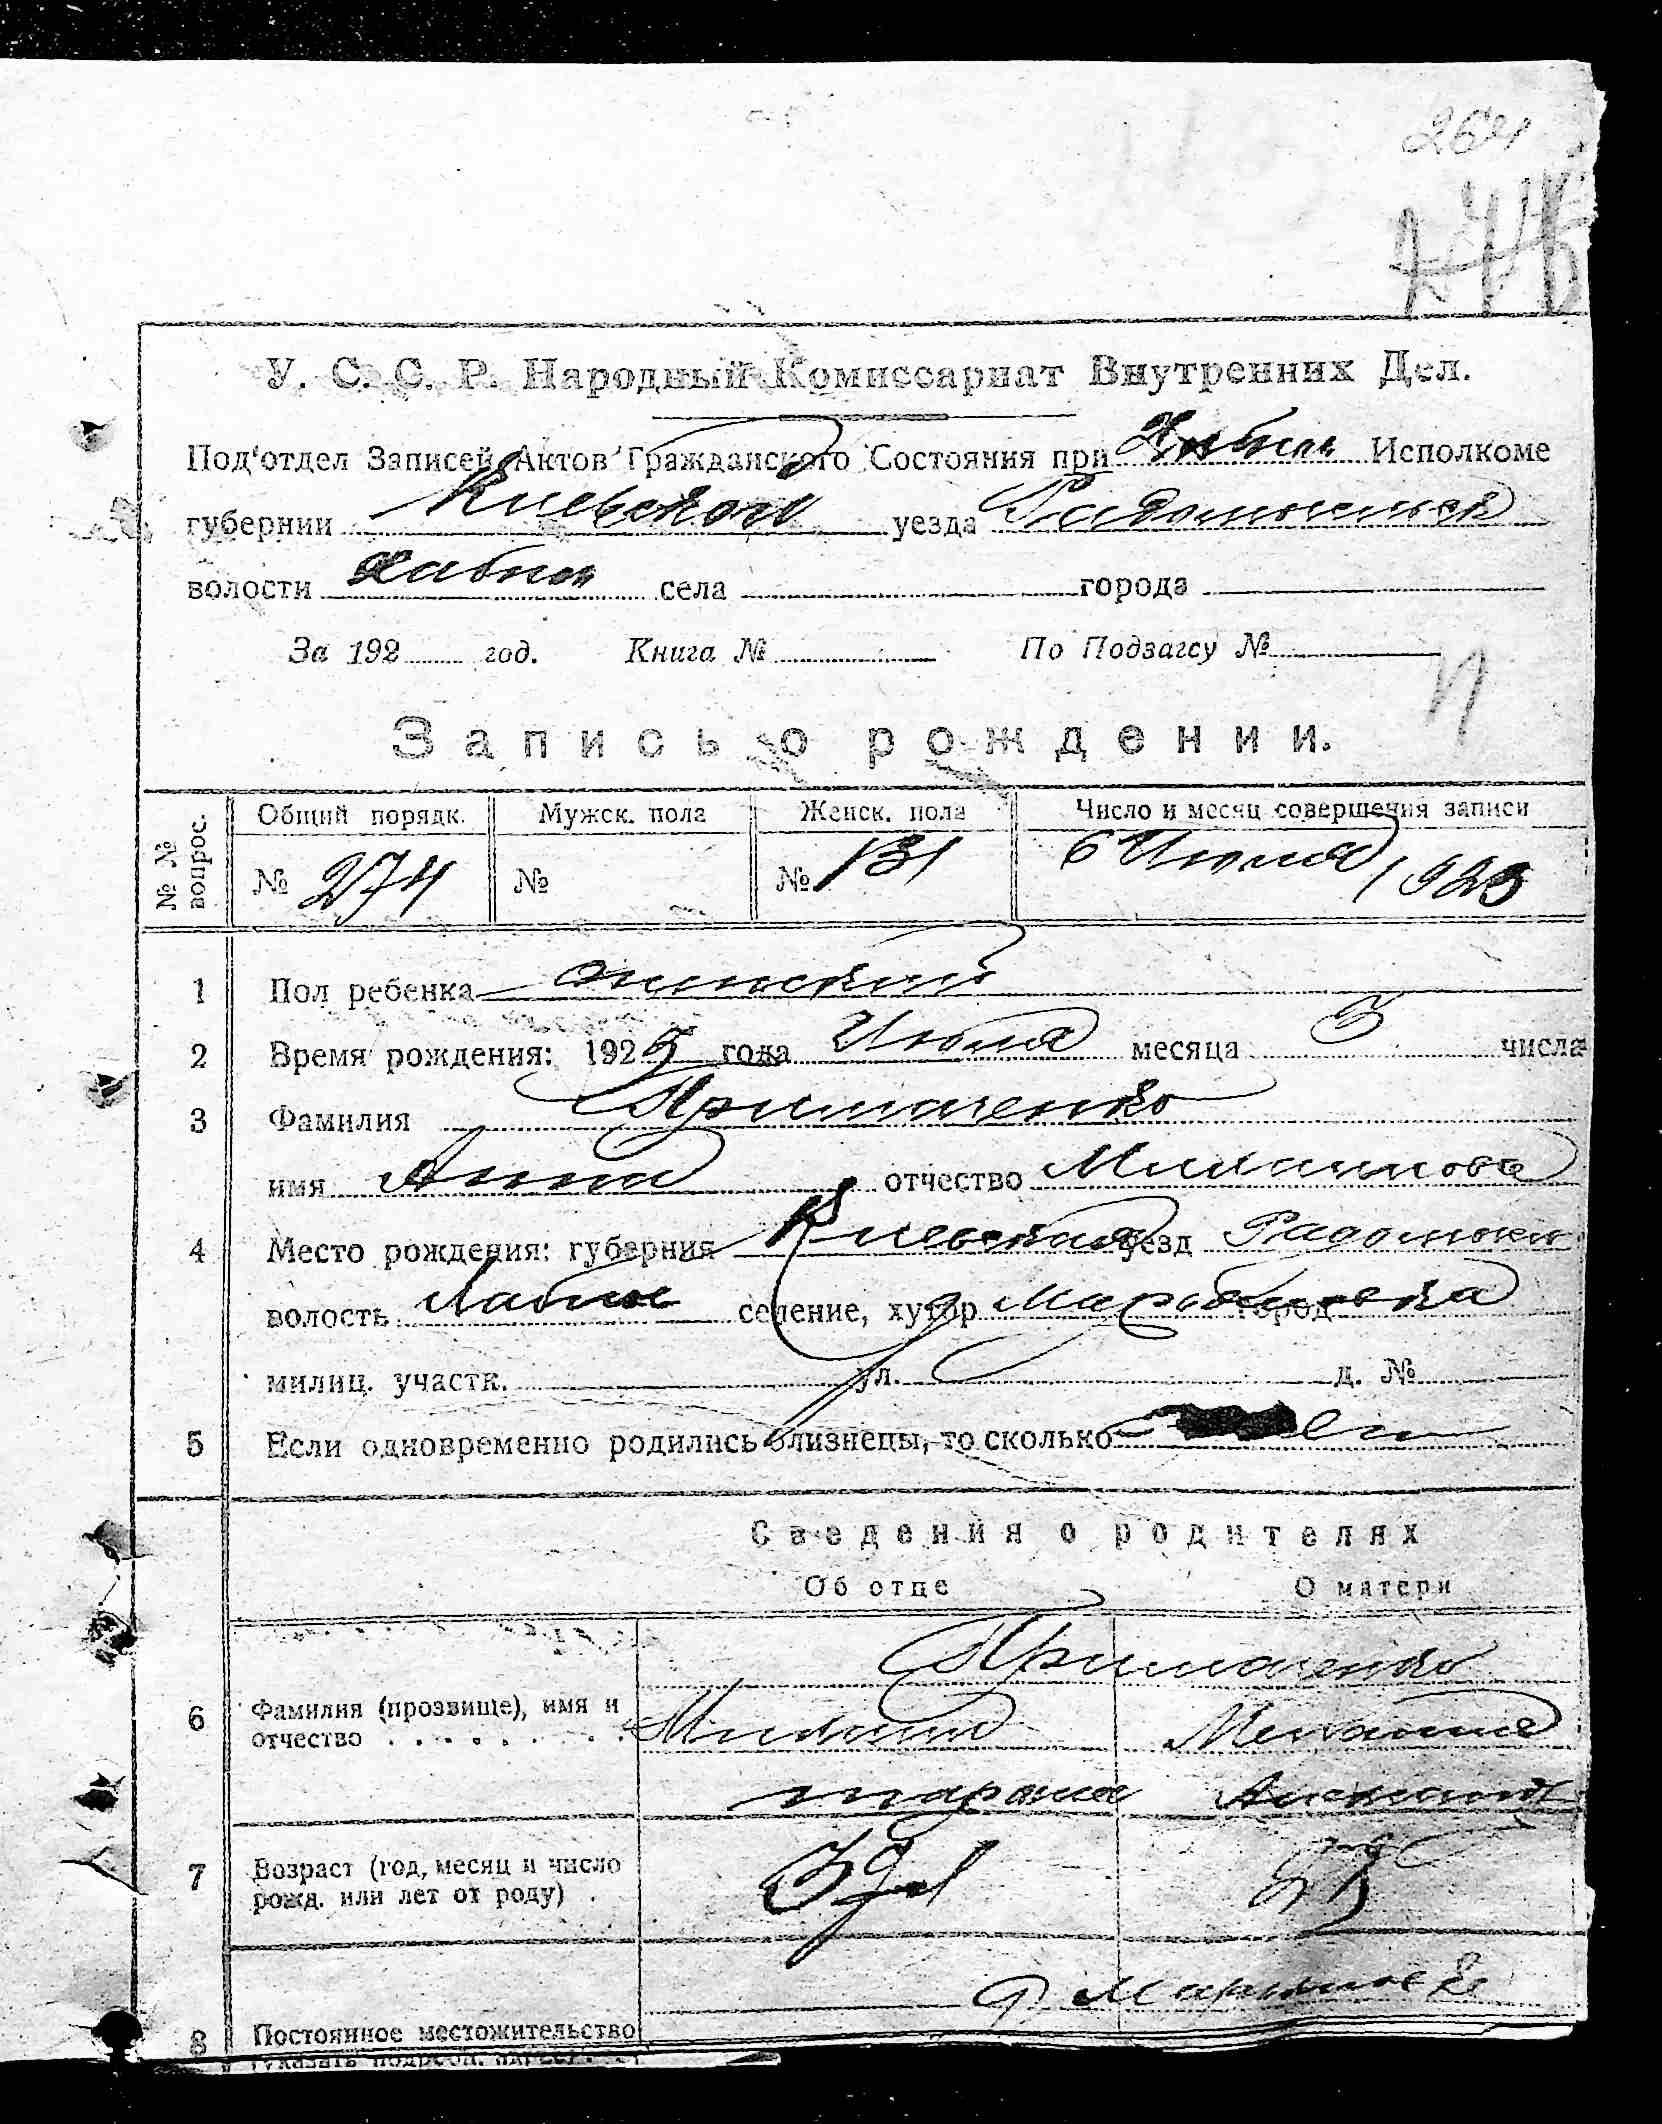 264
У. С. С. Р. Народный Комиссариат Внутренних Дел.
Под'отдел Записей Актов Гражданского Состояния при Хабен Исполкоме
губернии Киевской уезда Радомысльск
волости Хабен села города
За 192 год. Книга № По Подзагсу №
Запись о рождении.
№ № вопрос. Общий порядк. Мужск. пола Женск. пола Число и месяц совершения записи
№ 274 № № 131 6 Июля 1923
1 Пол ребенка женский
2 Время рождения: 1923 года Июля месяца 3 числа
3 Фамилия Примаченко
имя Анна отчество
4 Место рождения: губерния Киевская уезд Радомысл
волость Хабное селение, хутор город
милиц. участк. ул. д. №
5 Если одновременно родились близнецы, то сколько
Сведения о родителях
Об отце О матери
Примаченко
6 Фамилия (прозвище), имя и
отчество Мелания
7 Возраст (год, месяц и число
рожд. или лет от роду)
8 Постоянное местожительство
(указать подробн. адрес)